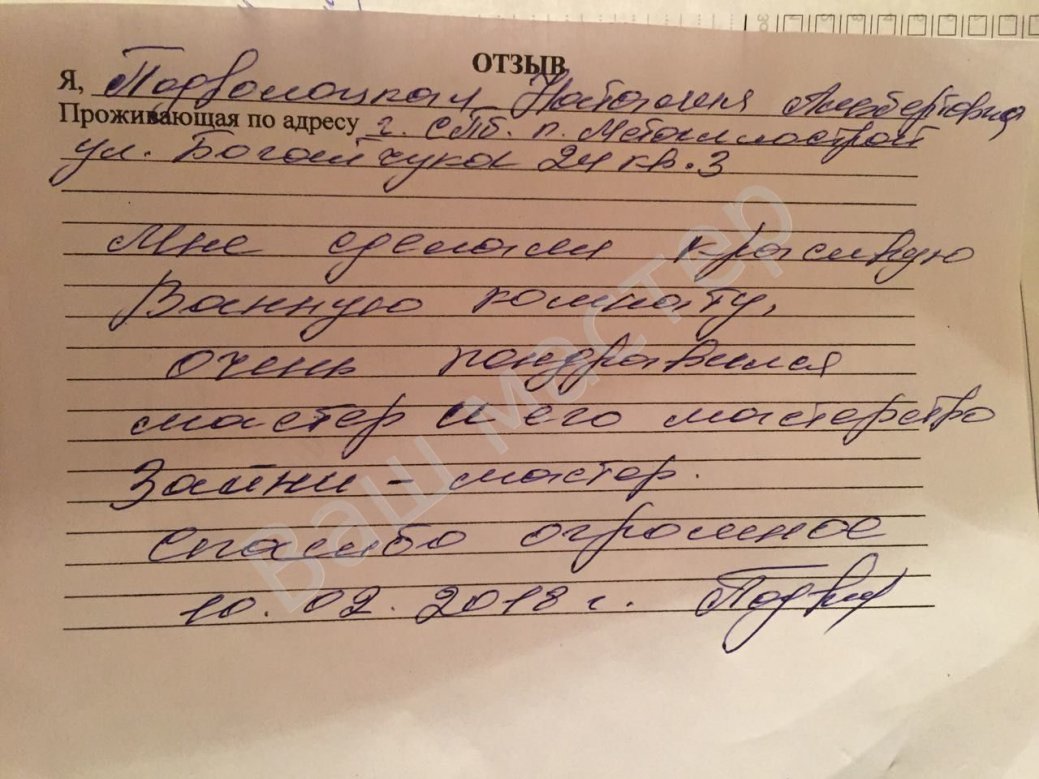 ОТЗЫВ
Я, Подволоцкая Наталия Альбертовна
Проживающая по адресу г. СПб. п. Металлострой
ул. Богайчука 24 кв. 3
Мне сделали красивую
Ванную комнату,
очень пондравился
мастер и его мастерство
Зайни - мастер.
Спасибо огромное
10.02.2018 г. Подвол
Ваш мастер